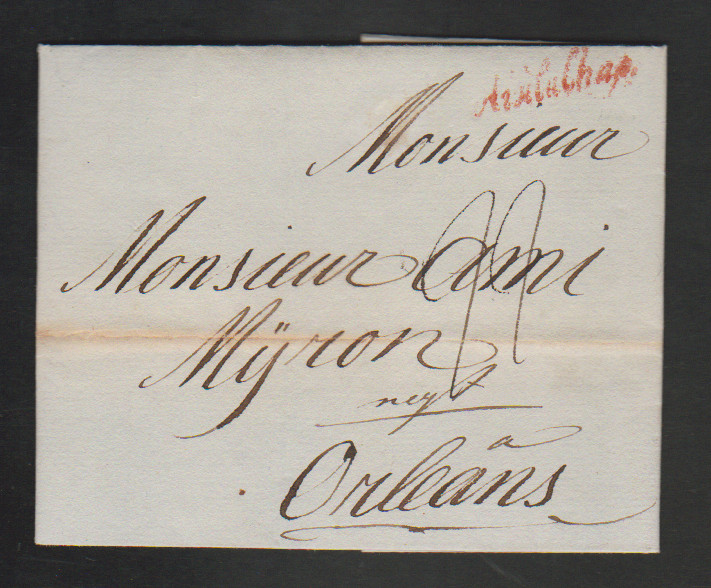 Aixla Chap.
Monsieur
Monsieur Ami
Mÿron
negt
a
Orleans